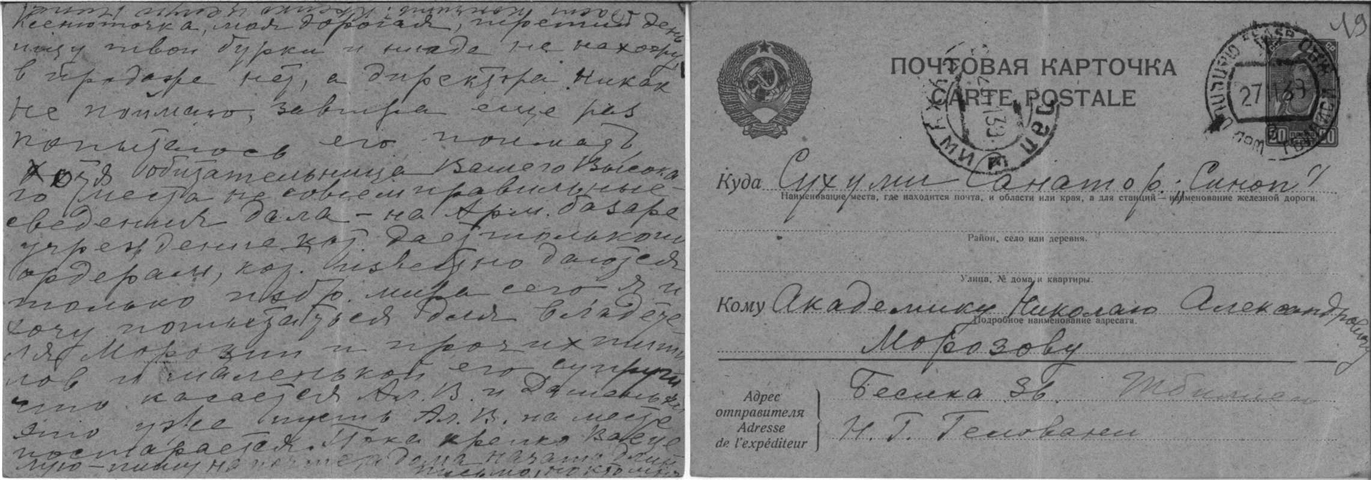 Ксюточка, моя дорогая, третий день
ищу твои бурки и нигде не нахожу
в продаже нет, а директора никак
не поймаю, завтра еще раз
попытаюсь его поймать
Хотя обитательница Вашего Высоко
го места не совсем правильные
сведения дала – на Арм. базаре
учреждение кот. дает только по
ордерам, кот. известно даются
только избр. мира сего я и
хочу попытаться для владете
ля Морозии и прочих титу
лов и маленькой его супруги
что касается Ал. В. и
это уже пусть Ал. В. на месте
постарается. Пока крепко Вас це
лую – пишу на почте, а дома начато
письмо,
19
ПОЧТОВАЯ КАРТОЧКА
CARTE POSTALE
27
39
СУХУМИ
Куда Сухуми Санатор. „Синоп"
Наименование места, где находится почта, и области или края, а для станций – наименование железной дороги.
Район, село или деревня.
Улица, № дома и квартиры.
Кому Академику Николаю Александровичу
Подробное наименование адресата.
Морозову
Адрес
отправителя
Adresse
de l'expéditeur
Бесика 3в. Тбилиси
Н. Г. Геловани